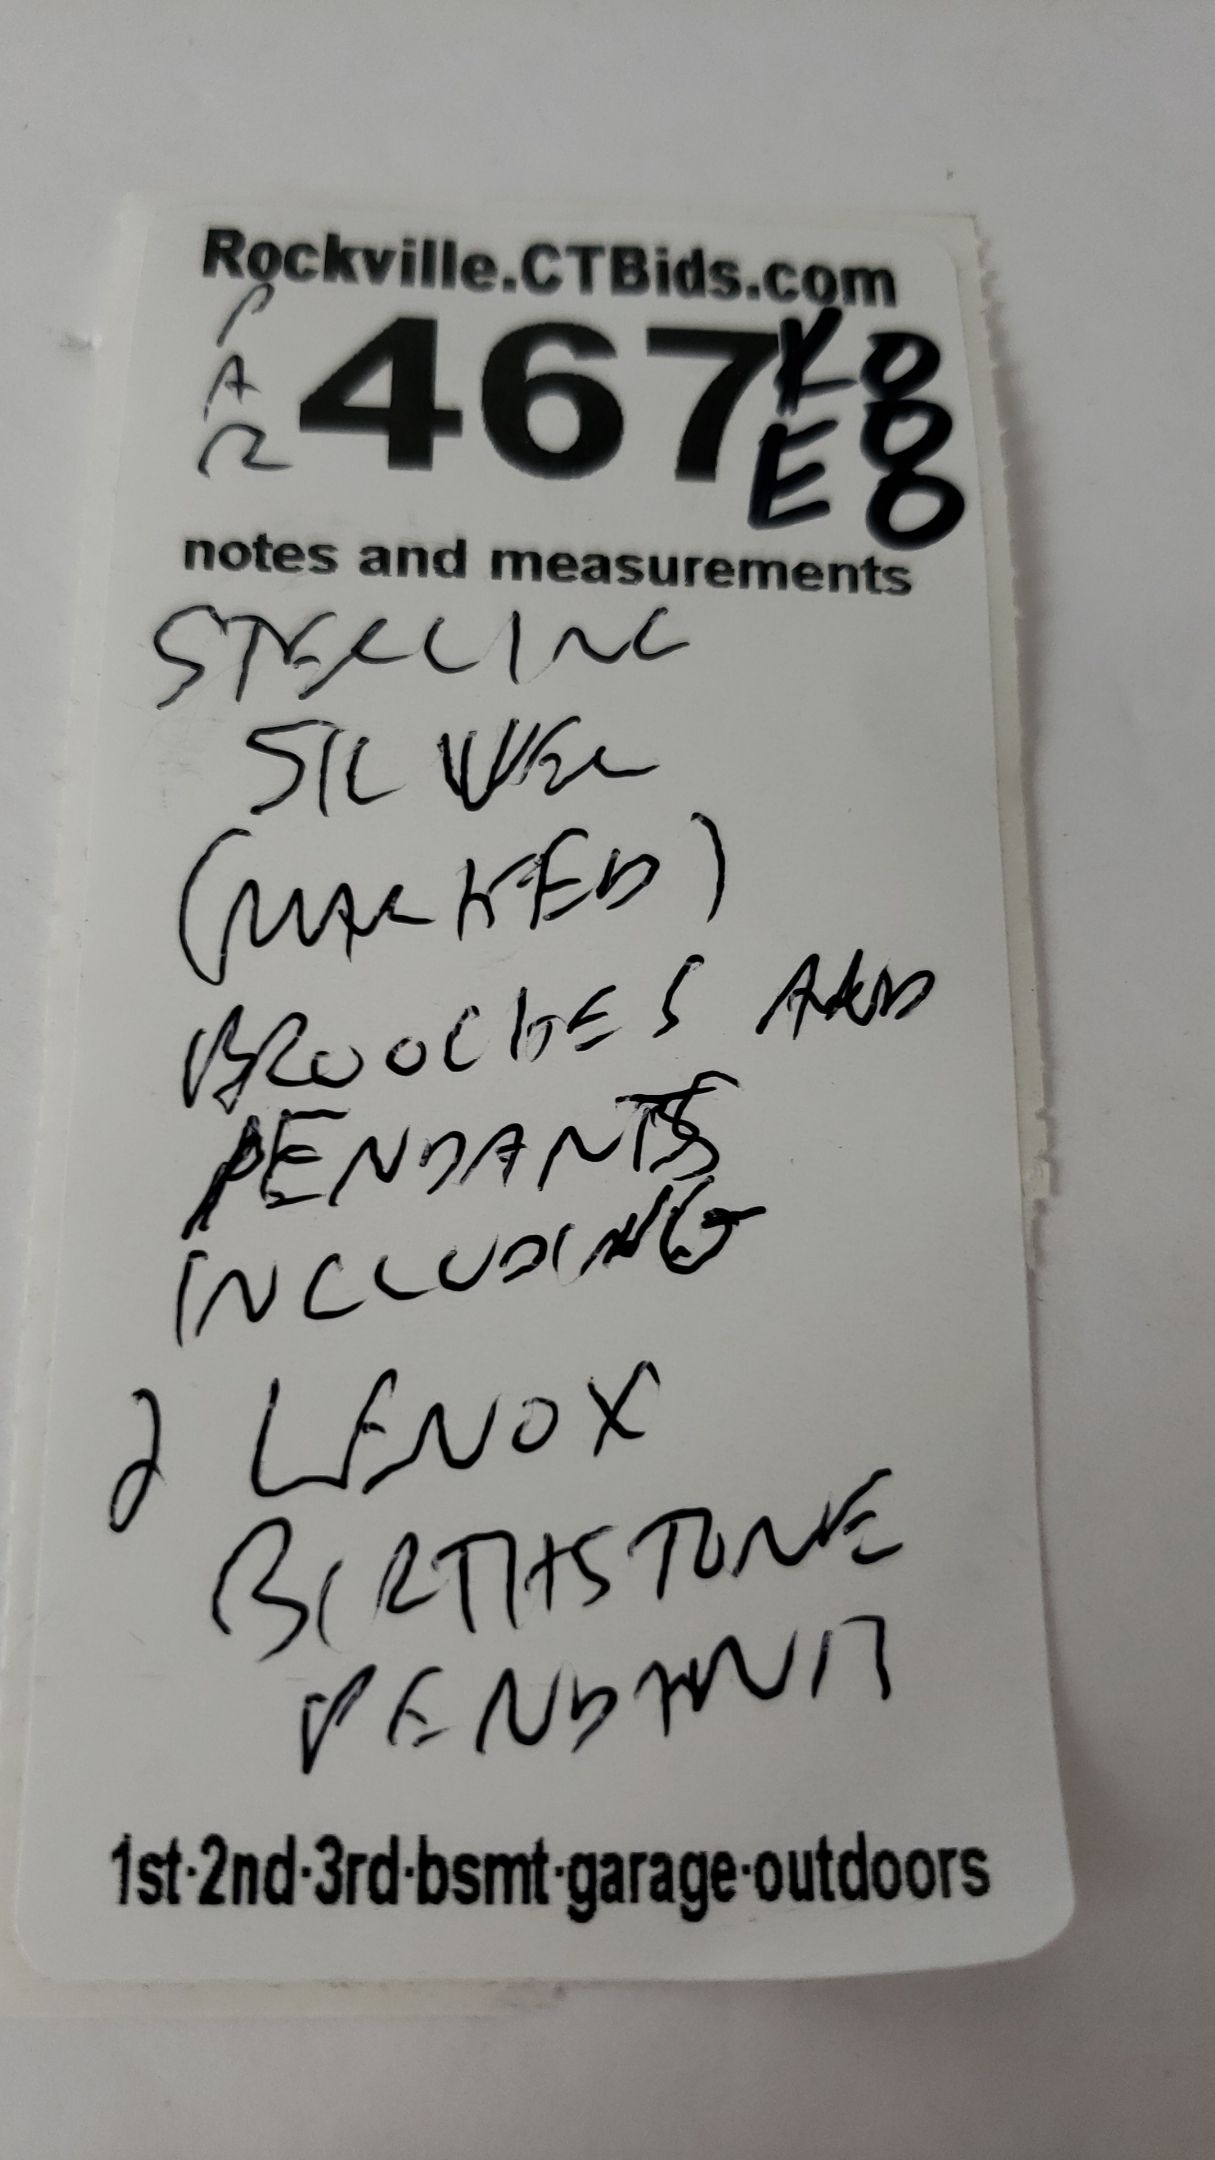 Rockville.CTBids.com
PAR
467
notes and measurements
STERLING
SILVER
(MARKED)
BROOCHES AND
PENDANTS
INCLUDING
2 LENOX
BIRTHSTONE
PENDANT
1st·2nd·3rd·bsmt·garage·outdoors